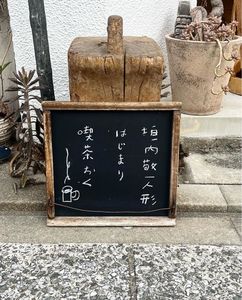 垣内敬一人形
はじまり
喫茶おく